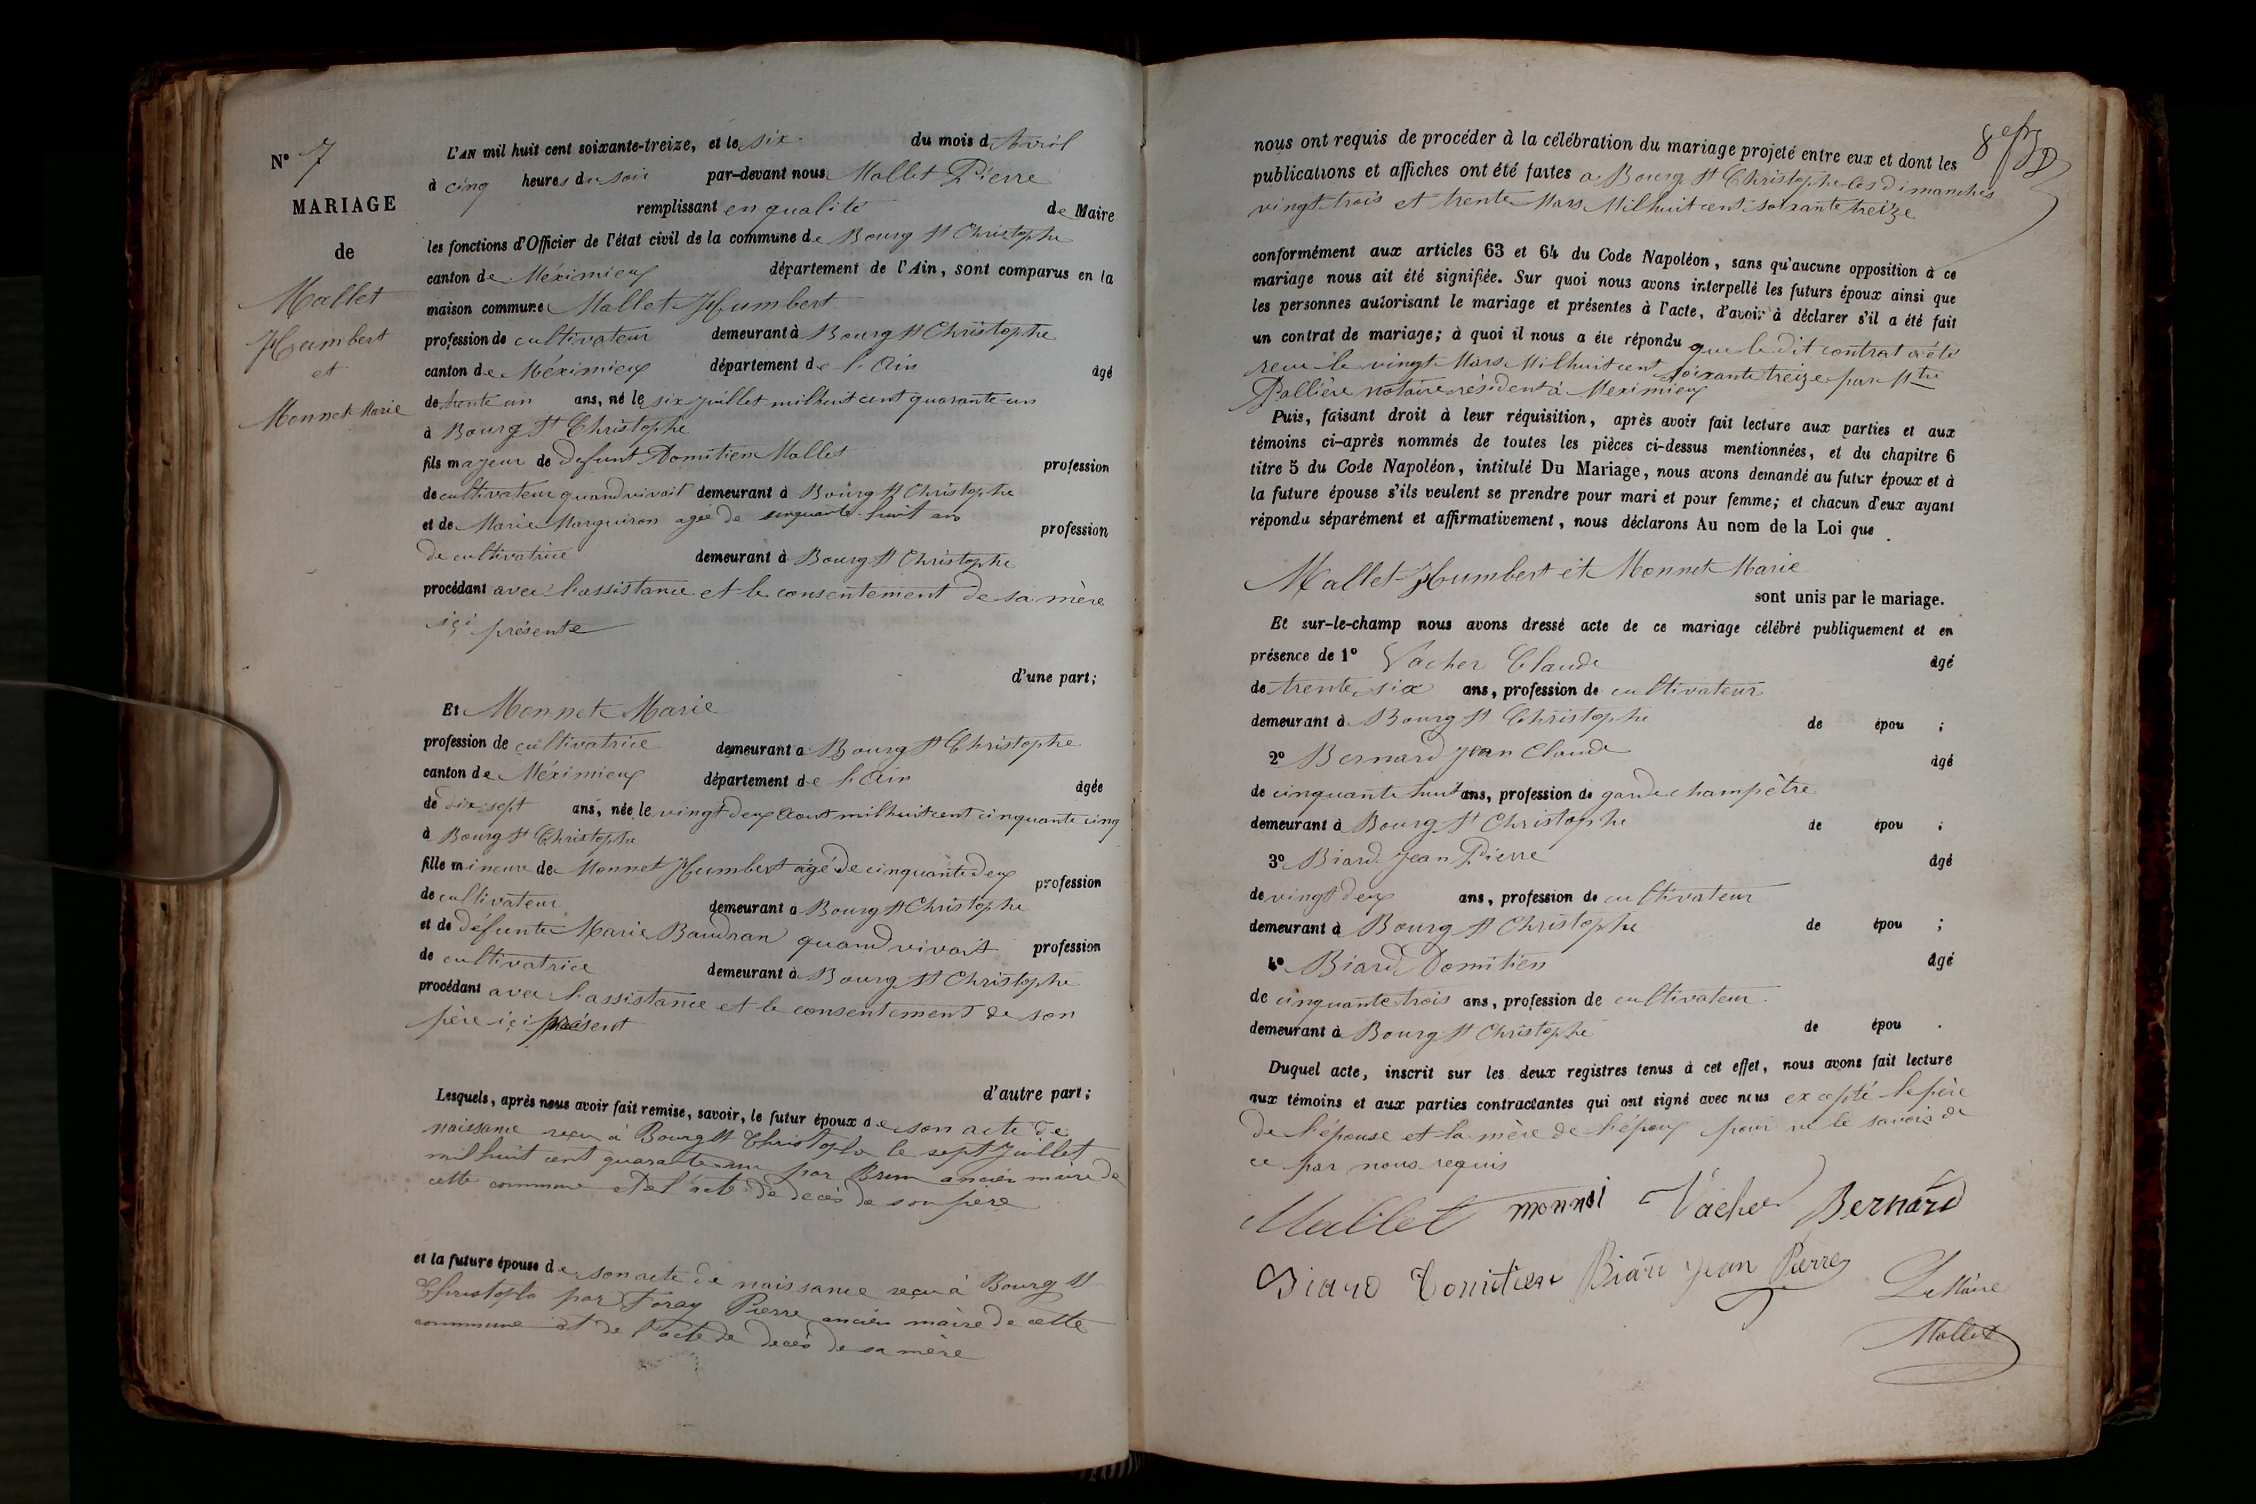 N° 7
MARIAGE
de
Mallet
Humbert
et
Monnet Marie
L'AN mil huit cent soixante-treize, et le six du mois d'Avril
à cinq heures du soir par-devant nous Mallet Pierre
remplissant en qualité de Maire
les fonctions d'Officier de l'état civil de la commune de Bourg St Christophe
canton de Méximieux département de l'Ain, sont comparus en la
maison commune Mallet Humbert
profession de cultivateur demeurant à Bourg St Christophe
canton de Méximieux département de l'Ain âgé
de trente un ans, né le six juillet mil huit cent quarante un
à Bourg St Christophe
fils majeur de defunt Domitien Mallet profession
de cultivateur quand vivait demeurant à Bourg St Christophe
et de Marie Marguiron agée de cinquante huit ans profession
de cultivatrice demeurant à Bourg St Christophe
procédant avec l'assistance et le consentement de sa mère
içi présente
d'une part;
Et Monnet Marie
profession de cultivatrice demeurant a Bourg St Christophe
canton de Méximieux département de l'Ain âgée
de dix sept ans, née le vingt deux Aout mil huit cent cinquante cinq
à Bourg St Christophe
fille mineure de Monnet Humbert agé de cinquante deux profession
de cultivateur demeurant a Bourg St Christophe
et de défunte Marie Baudran quand vivait profession
de cultivatrice demeurant à Bourg St Christophe
procédant avec l'assistance et le consentement de son
père içi présent
d'autre part;
Lesquels, après nous avoir fait remise, savoir, le futur époux de son acte de
naissance reçu à Bourg St Christophe le sept Juillet
mil huit cent quarante un par Brun ancien maire de
cette commune et de l'acte de decès de son père
et la future épouse de son acte de naissance reçu à Bourg St
Christophe par Foray Pierre ancien maire de cette
commune et de l'acte de decès de sa mère
nous ont requis de procéder à la célébration du mariage projeté entre eux et dont les
publications et affiches ont été faites a Bourg St Christophe les dimanches
vingt trois et trente Mars Mil huit cent soixante treize
conformément aux articles 63 et 64 du Code Napoléon, sans qu'aucune opposition à ce
mariage nous ait été signifiée. Sur quoi nous avons interpellé les futurs époux ainsi que
les personnes autorisant le mariage et présentes à l'acte, d'avoir à déclarer s'il a été fait
un contrat de mariage; à quoi il nous a été répondu que le dit contrat a été
recu le vingt Mars Mil huit cent soixante treize par Mtre
Pallière notaire résident à Meximieux
Puis, faisant droit à leur réquisition, après avoir fait lecture aux parties et aux
témoins ci-après nommés de toutes les pièces ci-dessus mentionnées, et du chapitre 6
titre 5 du Code Napoléon, intitulé Du Mariage, nous avons demandé au futur époux et à
la future épouse s'ils veulent se prendre pour mari et pour femme; et chacun d'eux ayant
répondu séparément et affirmativement, nous déclarons Au nom de la Loi que
Mallet Humbert et Monnet Marie
sont unis par le mariage.
Et sur-le-champ nous avons dressé acte de ce mariage célébré publiquement et en
présence de 1° Vacher Claude âgé
de trente six ans, profession de cultivateur
demeurant à Bourg St Christophe de épou ;
2° Bernard Jean Claude âgé
de cinquante huit ans, profession de garde champêtre
demeurant à Bourg St Christophe de épou ;
3° Biard Jean Pierre âgé
de vingt deux ans, profession de cultivateur
demeurant à Bourg St Christophe de épou ;
4° Biard Domitien âgé
de cinquante trois ans, profession de cultivateur
demeurant à Bourg St Christophe de épou .
Duquel acte, inscrit sur les deux registres tenus à cet effet, nous avons fait lecture
aux témoins et aux parties contractantes qui ont signé avec nous excepté le père
de l'épouse et la mère de l'époux pour ne le savoir de
ce par nous requis
Mallet Vacher Bernard
Biard Domitien Biard Jean Pierre Le Maire
Mallet